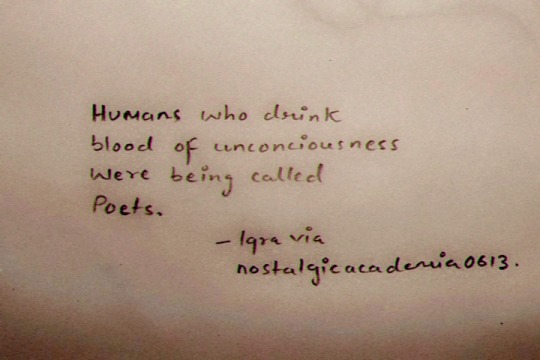 Humans who drink
blood of unconciousness
were being called
Poets.
— Iqra via
nostalgicacademia0613.